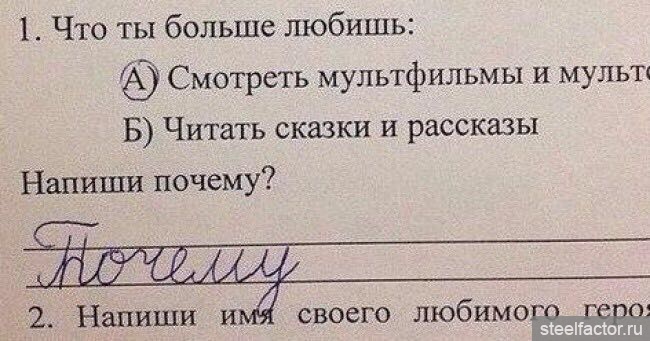 1. Что ты больше любишь:
А) Смотреть мультфильмы и
Б) Читать сказки и рассказы
Напиши почему?
Почему
2. Напиши имя своего любимого
steelfactor.ru